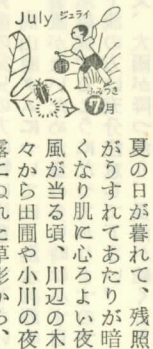 July ジュライ
ふみづき
7月
夏の日が暮れて、残照
がうすれてあたりが暗
くなり肌に心ろよい夜
風が当る頃、川辺の木
々から田圃や小川の夜
露にぬれた草影から、